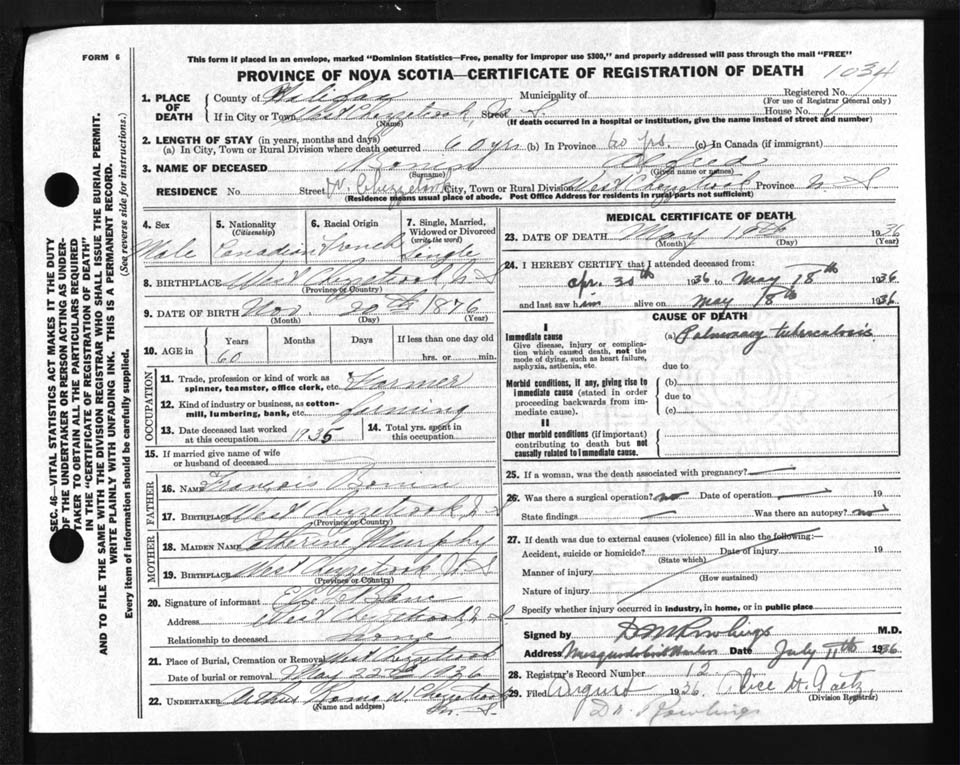 FORM 6
This form if placed in an envelope, marked "Dominion Statistics—Free, penalty for improper use $300," and properly addressed will pass through the mail "FREE"
PROVINCE OF NOVA SCOTIA—CERTIFICATE OF REGISTRATION OF DEATH 1034
SEC. 46—VITAL STATISTICS ACT MAKES IT THE DUTY
OF THE UNDERTAKER OR PERSON ACTING AS UNDER-
TAKER TO OBTAIN ALL THE PARTICULARS REQUIRED
IN THE "CERTIFICATE OF REGISTRATION OF DEATH"
AND TO FILE THE SAME WITH THE DIVISION REGISTRAR WHO SHALL ISSUE THE BURIAL PERMIT.
WRITE PLAINLY WITH UNFADING INK. THIS IS A PERMANENT RECORD.
Every item of information should be carefully supplied. (See reverse side for instructions.)
1. PLACE OF DEATH
County of Halifax Municipality of Registered No.
(For use of Registrar General only)
If in City or Town West Chezzetcook N S Street House No.
(Name) (If death occurred in a hospital or institution, give the name instead of street and number)
2. LENGTH OF STAY (in years, months and days)
(a) In City, Town or Rural Division where death occurred 60 yrs (b) In Province 60 yrs. (c) In Canada (if immigrant)
3. NAME OF DECEASED Bonin Alfred
(Surname) (Given name or names)
RESIDENCE No. Street W. Chezzetcook City, Town or Rural Division West Chezzetcook Province N S
(Residence means usual place of abode. Post Office Address for residents in rural parts not sufficient)
4. Sex
Male
5. Nationality
(Citizenship)
Canadian
6. Racial Origin
French
7. Single, Married,
Widowed or Divorced
(write the word)
Single
8. BIRTHPLACE West Chezzetcook N S
(Province or Country)
9. DATE OF BIRTH Nov 20th 1876
(Month) (Day) (Year)
10. AGE in
Years Months Days If less than one day old
60 hrs. or min.
OCCUPATION
11. Trade, profession or kind of work as
spinner, teamster, office clerk, etc. Farmer
12. Kind of industry or business, as cotton-
mill, lumbering, bank, etc. farming
13. Date deceased last worked
at this occupation 1935
14. Total yrs. spent in
this occupation
15. If married give name of wife
or husband of deceased
FATHER
16. Name Francois Bonin
17. Birthplace West Chezzetcook N S
(Province or Country)
MOTHER
18. Maiden Name Catherine Murphy
19. Birthplace West Chezzetcook N S
(Province or Country)
20. Signature of informant
Address West Chezzetcook N S
Relationship to deceased
21. Place of Burial, Cremation or Removal West Chezzetcook
Date of burial or removal May 22nd 1936
22. UNDERTAKER Arthur Roma W Chezzetcook
(Name and address) N. S.
MEDICAL CERTIFICATE OF DEATH
23. DATE OF DEATH May 18th 1936
(Month) (Day) (Year)
24. I HEREBY CERTIFY that I attended deceased from:
Apr. 30th 1936 to May 18th 1936
and last saw him alive on May 18th 1936
CAUSE OF DEATH
I
Immediate cause
Give disease, injury or complica-
tion which caused death, not the
mode of dying, such as heart failure,
asphyxia, asthenia, etc.
(a) Pulmonary tuberculosis
due to
Morbid conditions, if any, giving rise to
immediate cause (stated in order
proceeding backwards from im-
mediate cause).
(b)
due to
(c)
II
Other morbid conditions (if important)
contributing to death but not
causally related to immediate cause.
25. If a woman, was the death associated with pregnancy?
26. Was there a surgical operation? no Date of operation 19
State findings Was there an autopsy? no
27. If death was due to external causes (violence) fill in also the following:—
Accident, suicide or homicide? Date of injury 19
(State which)
Manner of injury
(How sustained)
Nature of injury
Specify whether injury occurred in industry, in home, or in public place
Signed by D M Rowlings M.D.
Address Musquodoboit Harbor Date July 11th 1936
28. Registrar's Record Number 12
29. Filed August 1936 Alice H. Gaetz
(Division Registrar)
Dr. Rowlings